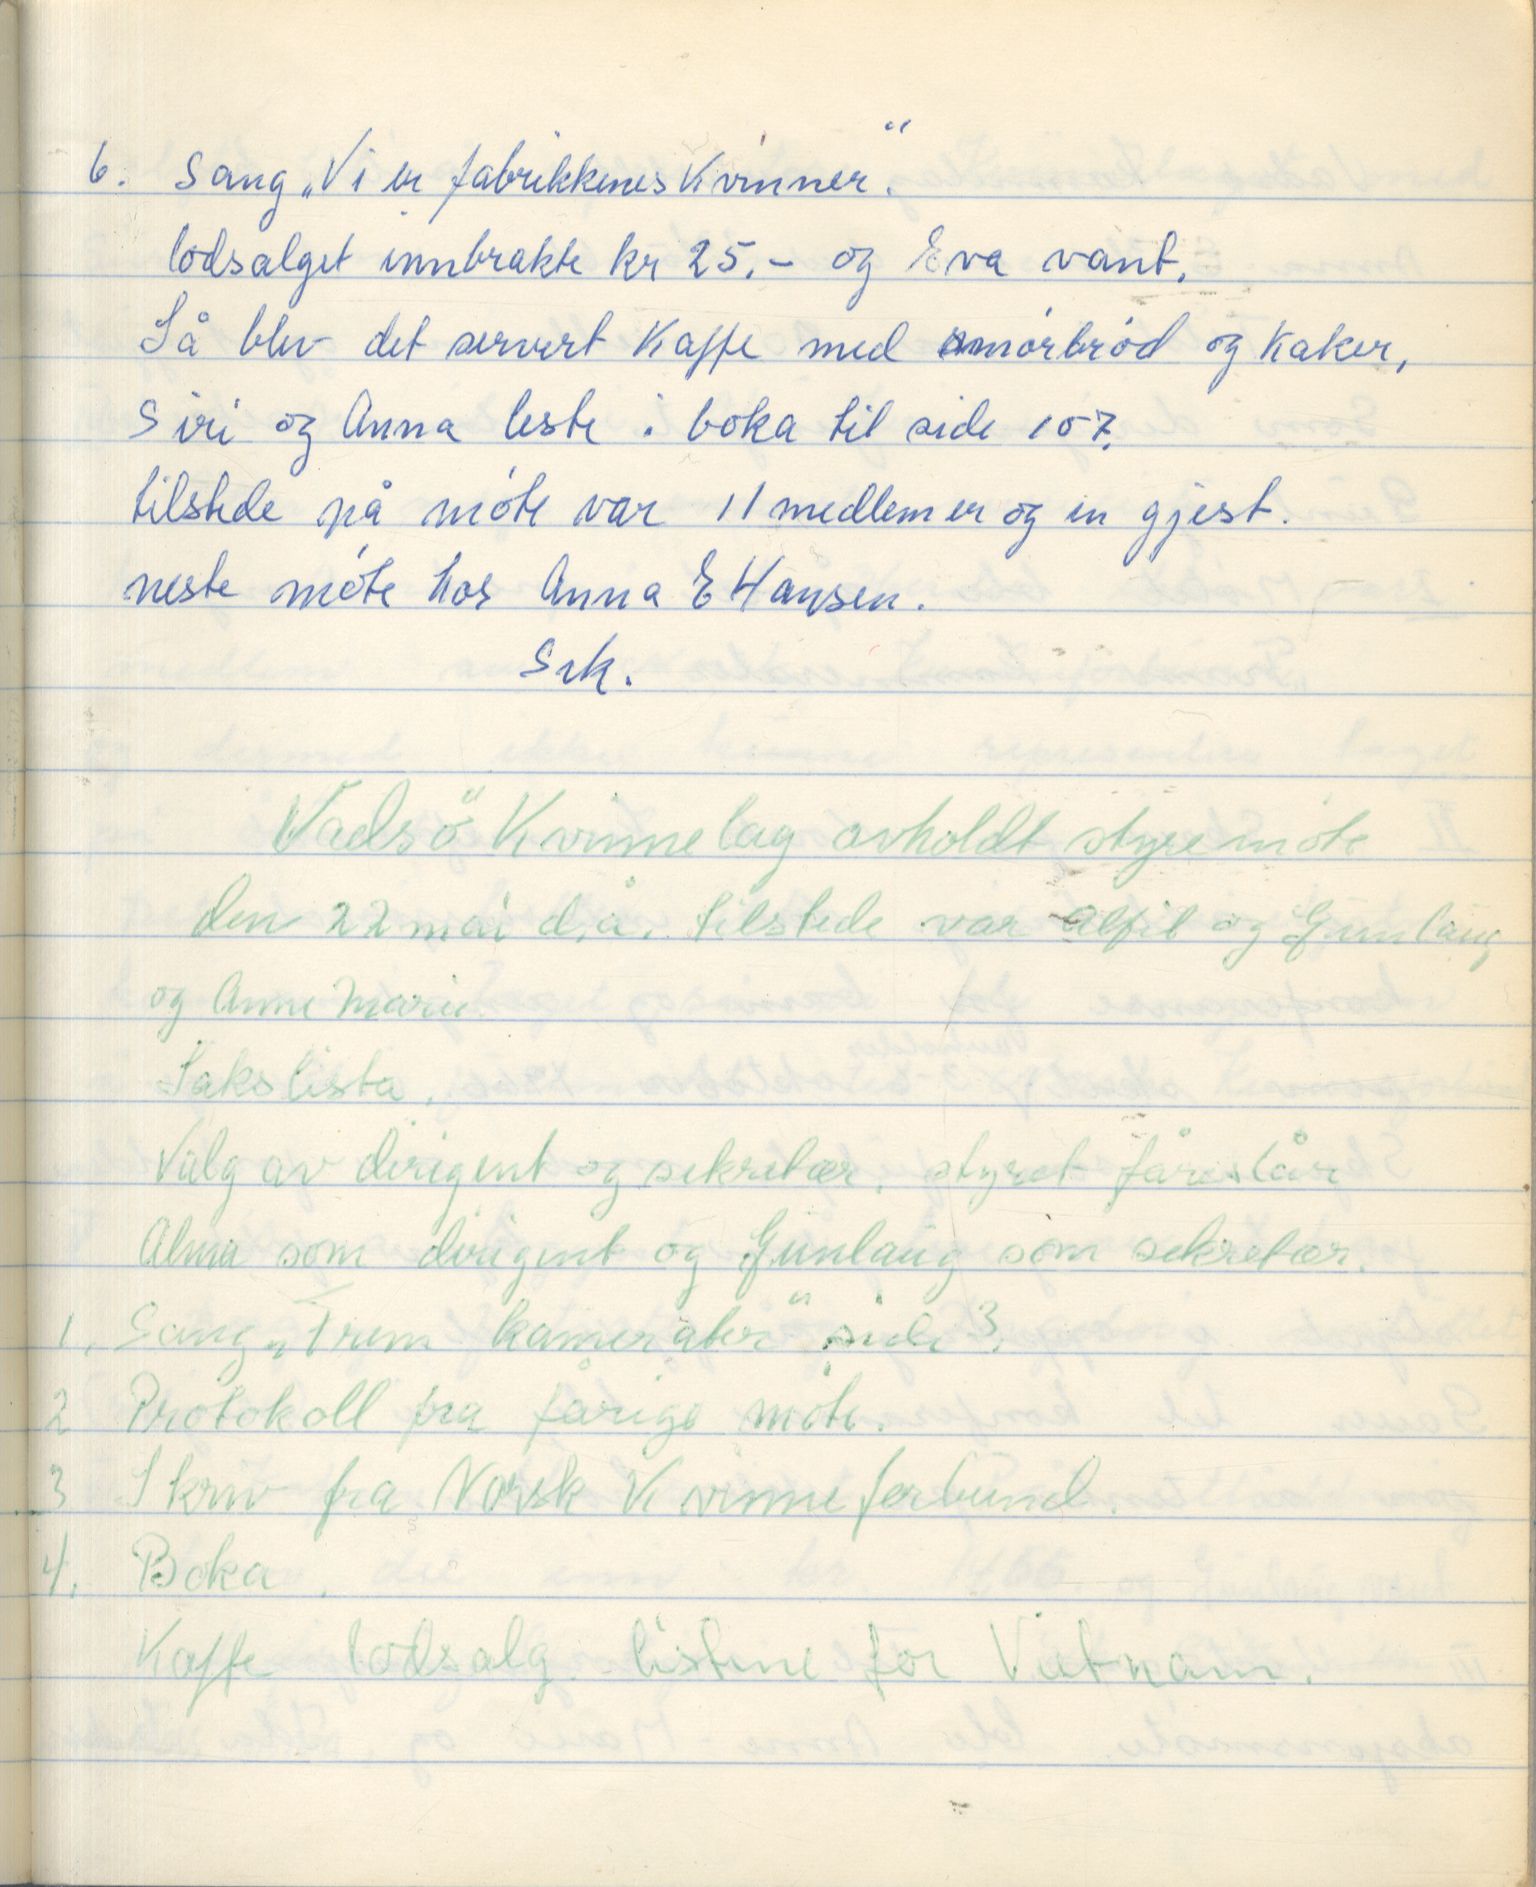 6. Sang „Vi er fabrikkenes Kvinner".
lodsalget innbrakte kr 25.- og Eva vant.
Så blev det servert Kaffe med smörbröd og Kaker,
Siri og Anna leste i boka til side 107.
tilstede på möte var 11 medlemer og en gjest.
neste möte hos Anna E Hansen.
Sek.
Vadsö Kvinnelag avholdt styremöte
den 22 mai d.å. tilstede var Alfil og Gunlaug
og Anne Marie.
Sakslista.
Valg av dirigent og sekretær. styret fåreslår
Alma som dirigent og Gunlaug som sekretær.
1. Sang „Frem kamerater" side 3.
2 Protokoll fra fårige möte.
3 Skriv fra Norsk Kvinneforbund.
4. Boka.
Kaffe lodsalg. listene for Vietnam.